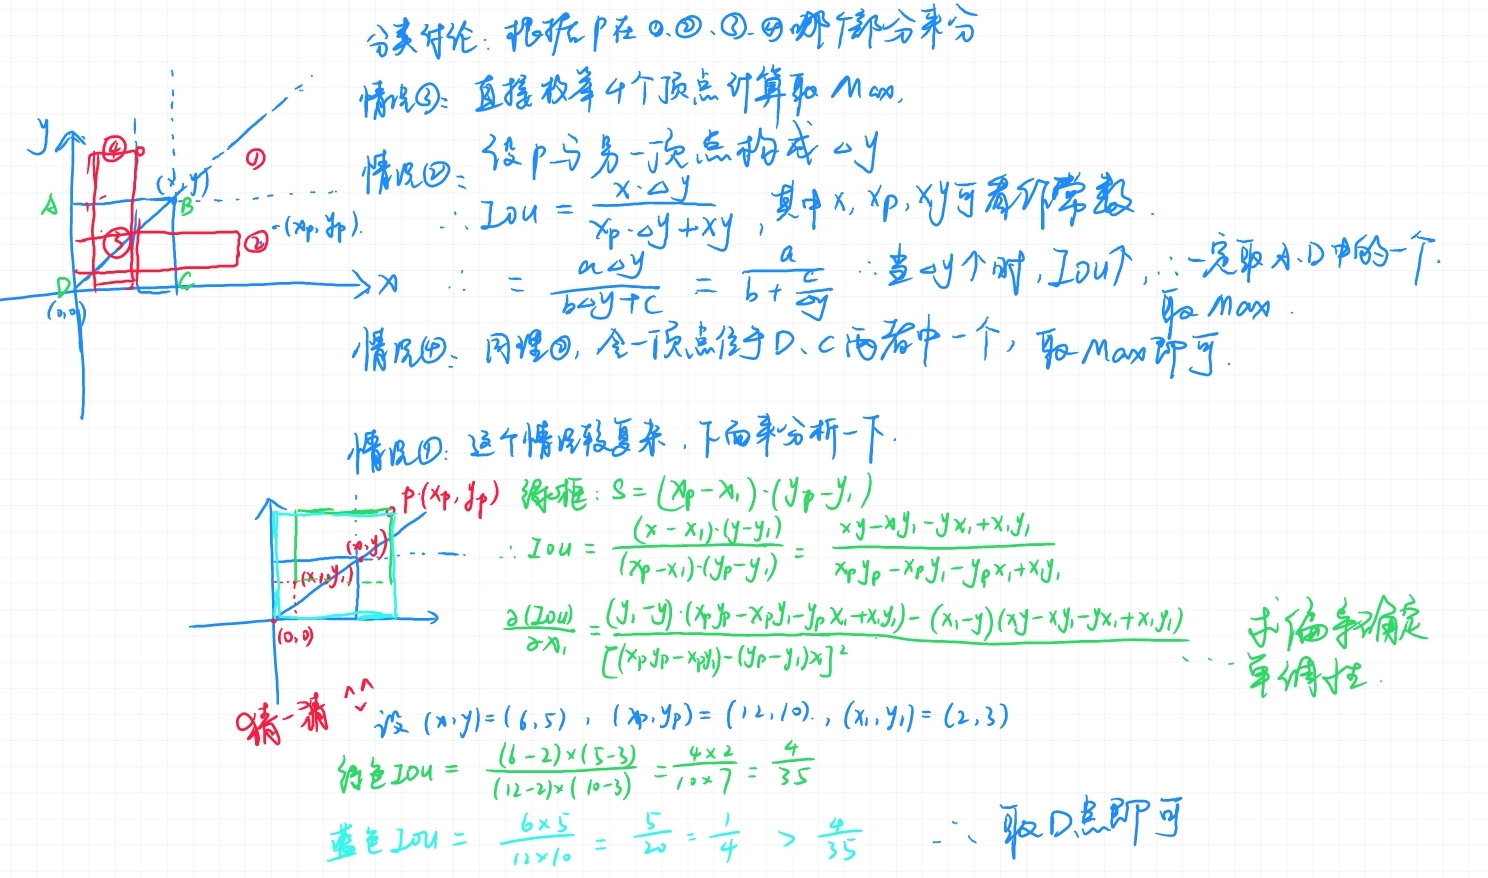 分类讨论：根据P在①、②、③、④哪个部分来分
情况③：直接枚举4个顶点计算取Max,
情况②：设P与另一顶点构成△y
∴ IOU = x·△y / (xp·△y+xy) , 其中x, xp, xy可看作常数.
∴ = a△y / (b△y+c) = a / (b + c/△y) ∴当△y↑时, IOU↑, ∴一定取A、D中的一个.
取Max.
情况④：同理②, 令一顶点位于D、C两者中一个, 取Max即可.
y
④
①
(x, y)
A
B
(xp, yp).
③
②
D
C
x
(0,0)
情况①：这个情况较复杂, 下面来分析一下.
P·(xp, yp)
(x, y)
(x₁, y₁)
(0,0)
绿框：S = (xp-x₁)·(yp-y₁)
∴ IOU = (x-x₁)·(y-y₁) / (xp-x₁)·(yp-y₁) = (xy-xy₁-yx₁+x₁y₁) / (xpyp-xpy₁-ypx₁+x₁y₁)
∂(IOU)/∂x₁ = (y₁-y)·(xpyp-xpy₁-ypx₁+x₁y₁)-(x₁-y)(xy-xy₁-yx₁+x₁y₁) / [(xpyp-xpy₁)-(yp-y₁)x]²
... 求偏导确定
单调性.
猜一猜 ^^
设 (x,y)=(6,5) , (xp,yp)=(12,10). , (x₁,y₁)=(2,3)
绿色IOU = (6-2)×(5-3) / (12-2)×(10-3) = 4×2 / 10×7 = 4/35
蓝色IOU = 6×5 / 12×10 = 5/20 = 1/4 > 4/35 ∴ 取D点即可